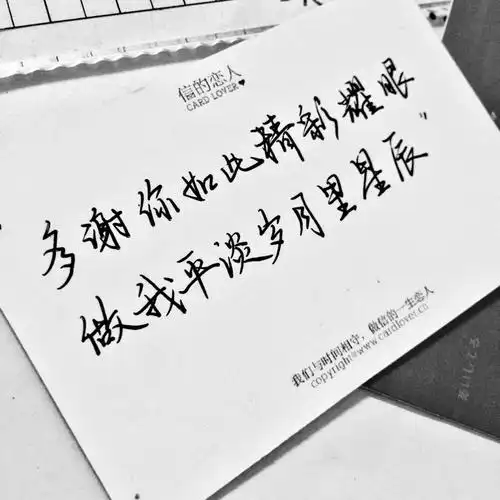 信的恋人
CARD LOVER♥
多谢你如此精彩耀眼
做我平淡岁月里星辰
我们与时间相守，做信的一生恋人
copyright@www.cardlover.cn
あいしてる